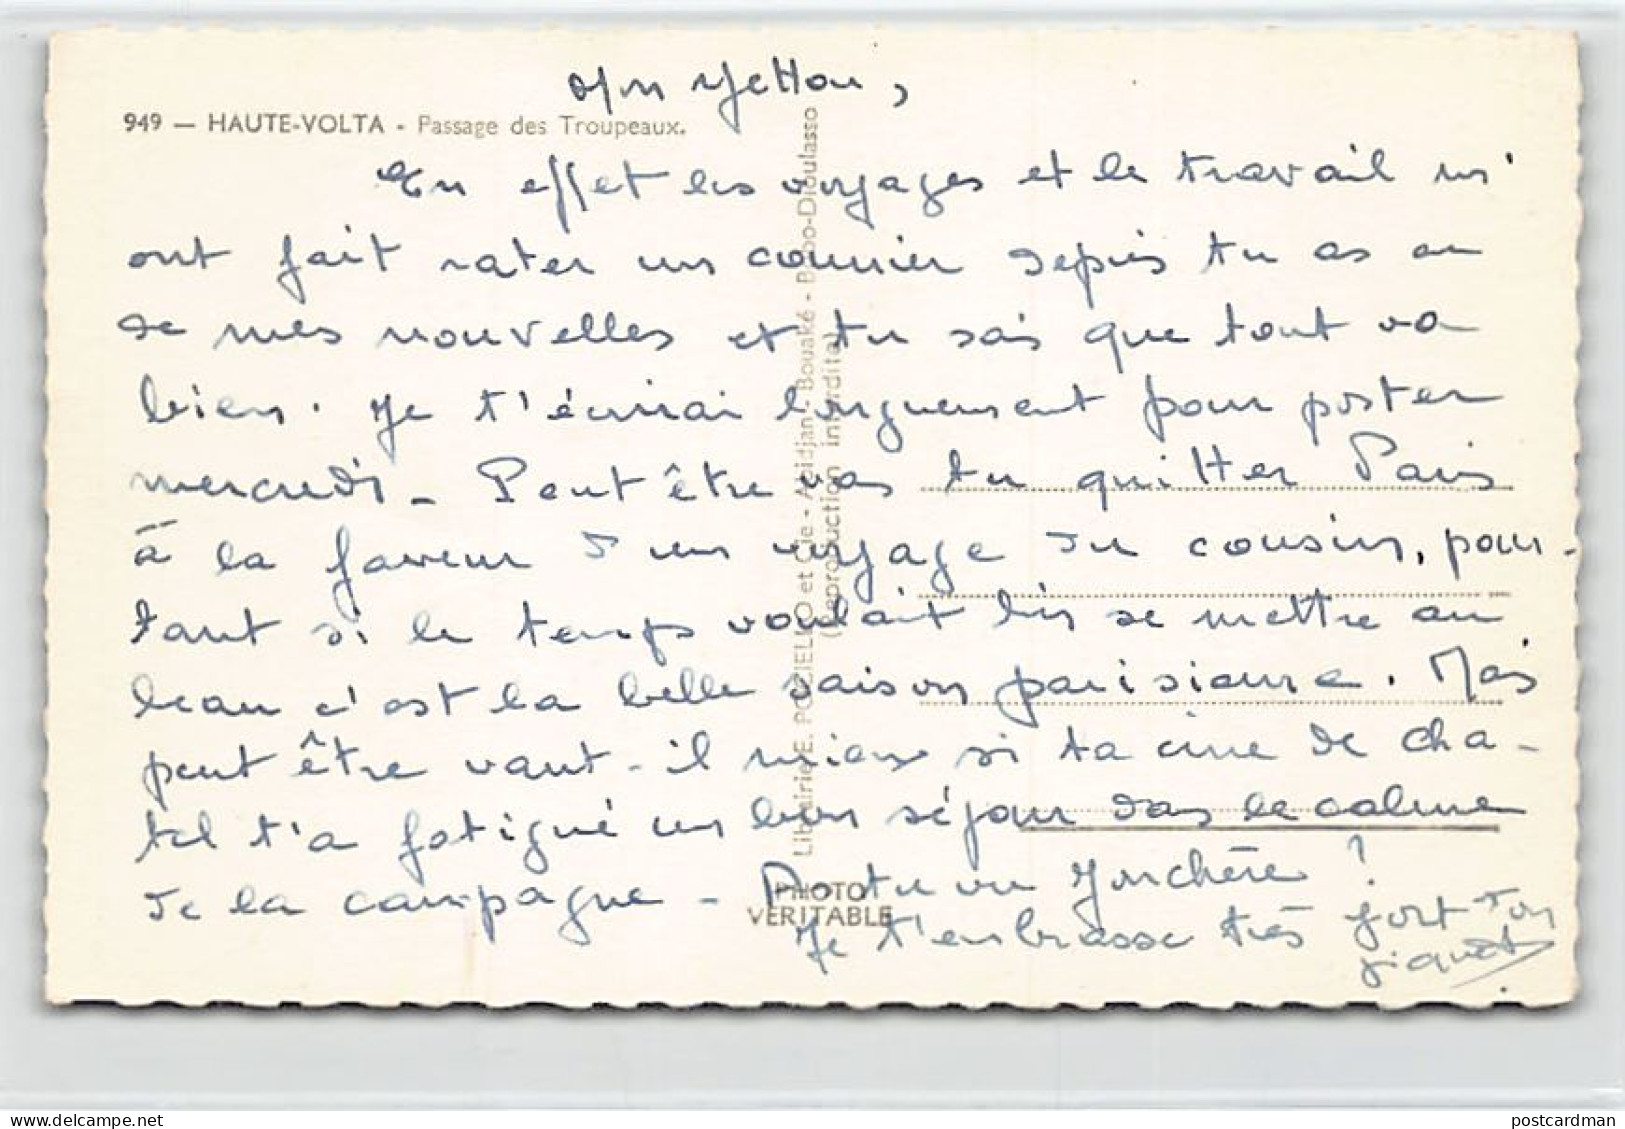 949 — HAUTE-VOLTA - Passage des Troupeaux.
En effet les voyages et le travail m'
ont fait rater un courrier depuis tu as eu
de mes nouvelles et tu sais que tout va
bien. Je t'écrirai longuement pour poster
mercredi - Peut être vas tu quitter Paris
à la faveur d'un voyage du cousin, pour-
tant si le temps voulait bien se mettre au
beau c'est la belle saison parisienne. Mais
peut être vaut-il mieux si ta cure de Cha-
tel t'a fatigué un bon séjour dans le calme
de la campagne -
Je t'embrasse très fort Ton
Librairie E. POCIELLO et Cie - Abidjan - Bouaké - Bobo-Dioulasso
(Reproduction interdite)
PHOTO
VERITABLE
postcardman